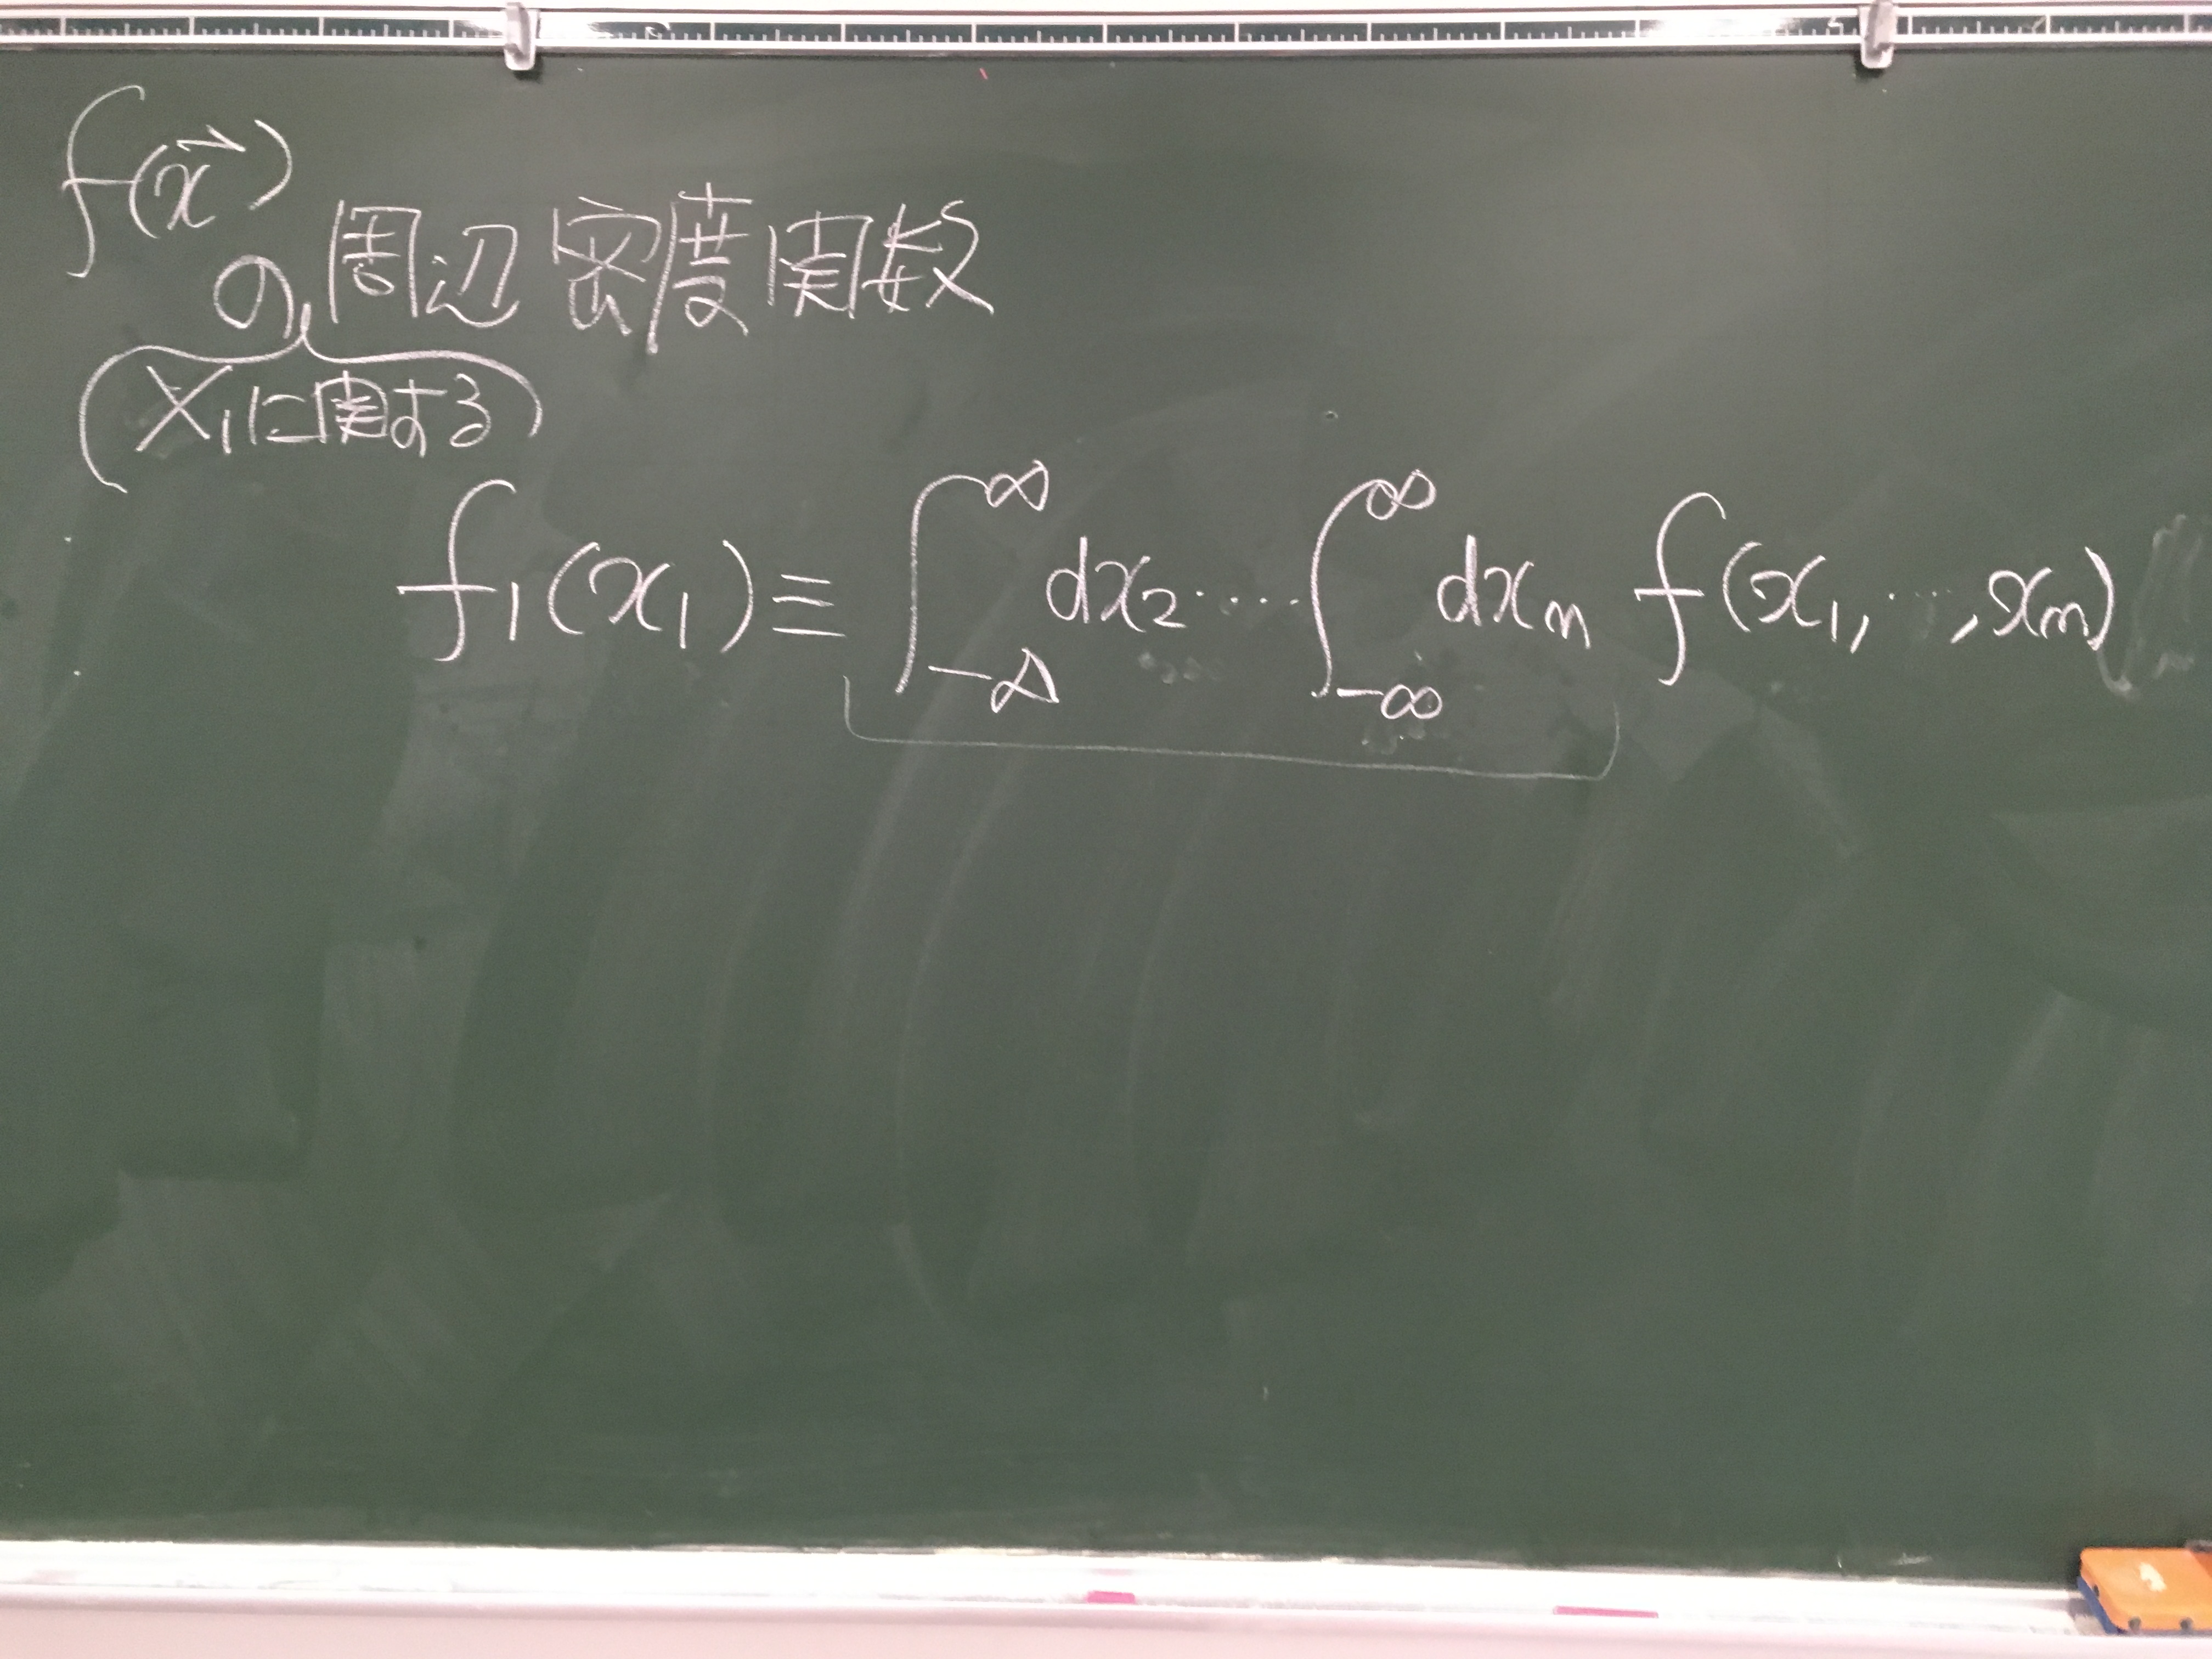 f(x⃗)
の周辺密度関数
(X₁に関する)
f₁(x₁) ≡ ∫_{-∞}^{∞} dx₂ ⋯ ∫_{-∞}^{∞} dxₙ f(x₁, ⋯, xₙ)